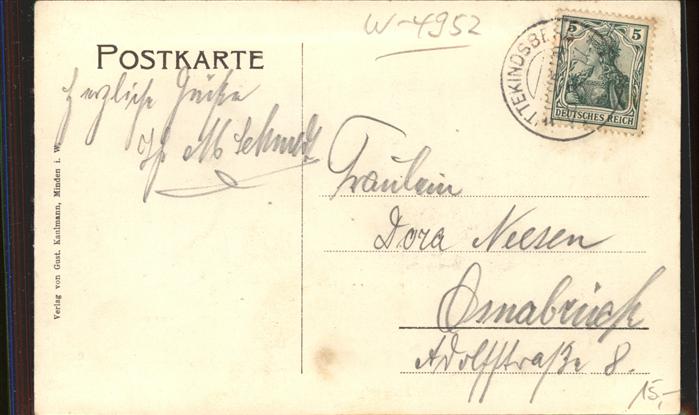 W-4952
POSTKARTE
Herzliche Grüße
M. Schmidt
Fräulein
Dora Neesen
Osnabrück
Adolfstraße 8.
15,-
5 5
DEUTSCHES REICH
Verlag von Gust. Kaulmann, Minden i. W.